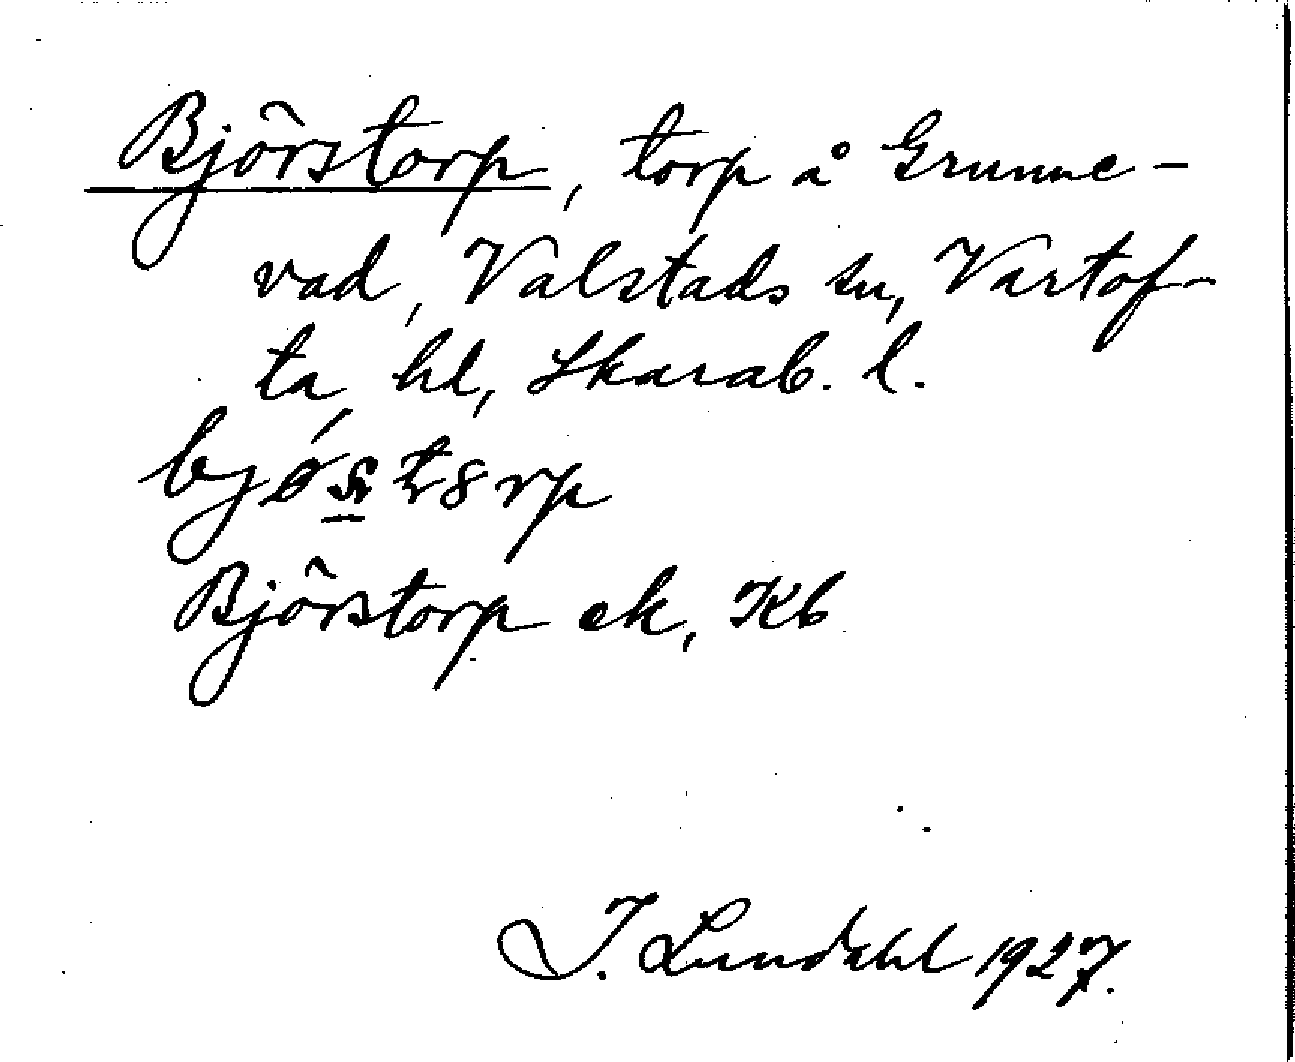 Björstorp, torp å Grunne-
vad, Valstads sn, Vartof-
ta hd, Skarab. l.
Björstorp ek, Kb
I. Lundahl 1927.